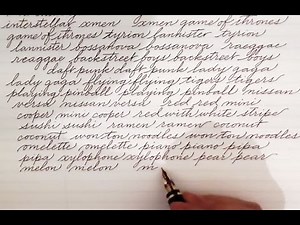 interstellar xmen Xmen game of thrones
game of thrones tyrion lannister tyrion
lannister bossanova bossanova reaggae
reaggae backstreet boys backstreet boys
daft punk daft punk lady gaga
lady gaga flying flying tigers tigers
playing pinball playing pinball nissan
versa nissan versa red red mini
cooper mini cooper red with white stripe
sushi sushi ramen ramen coconut
coconut won ton noodles won ton noodles
omelette omelette piano piano pipa
pipa xylophone xylophone pear pear
melon melon m